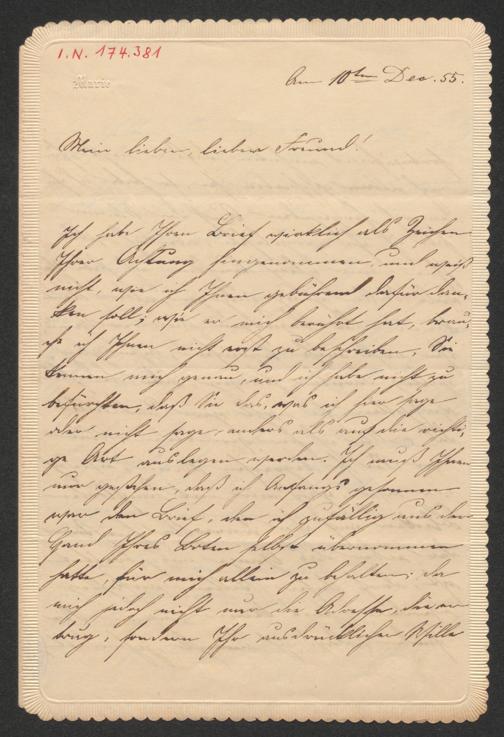 I.N. 174.381
Marie
Am 10ten Dec. 55.
Mein lieber, lieber Freund!
Ich habe Ihren Brief wirklich als Zeichen
Ihrer Achtung hingenommen, und weiß
nicht, wie ich Ihnen gebührend dafür dan-
ken soll; wie er mich berührt hat, brau-
che ich Ihnen nicht erst zu beschreiben. Sie
kennen mich genau, und ich habe nicht zu
befürchten, daß Sie das, was ich da sage
oder nicht sage, anders als auf die richti-
ge Art auslegen werden. Ich muß Ihnen
nur gestehen, daß ich Anfangs gesonnen
war den Brief, den ich zufällig aus der
Hand Ihres Boten selbst übernommen
hatte, für mich allein zu behalten; da
mich jedoch nicht nur die Adresse, die er
trug, sondern Ihr ausdrücklicher Wille